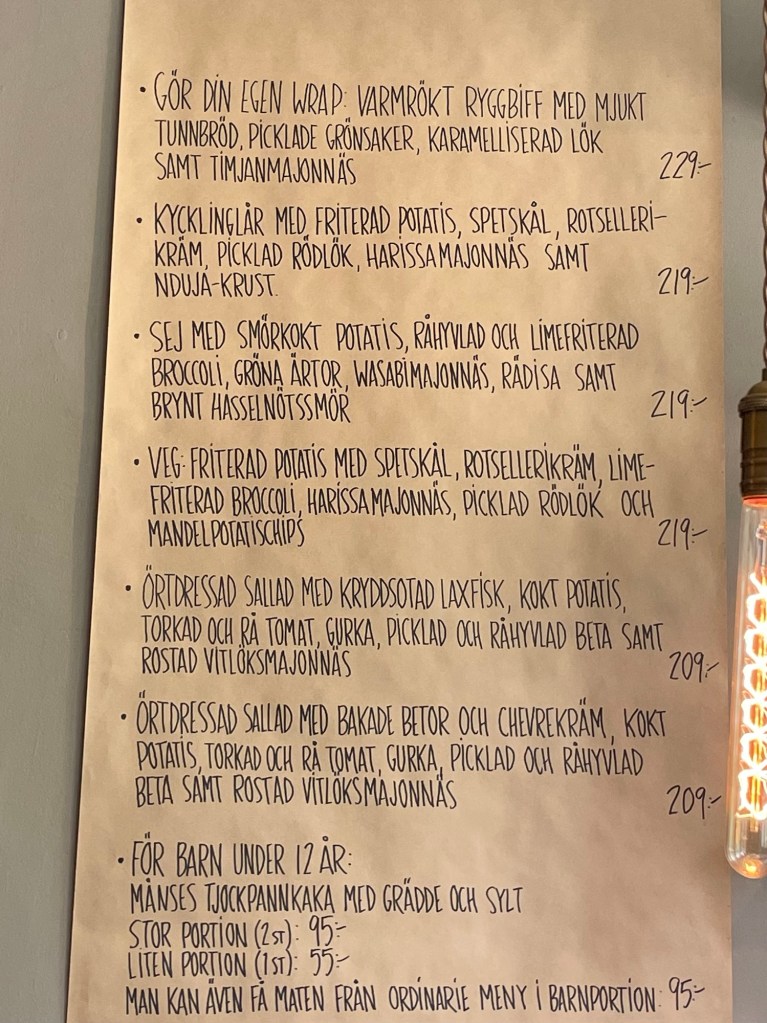 • GÖR DIN EGEN WRAP: VARMRÖKT RYGGBIFF MED MJUKT
TUNNBRÖD, PICKLADE GRÖNSAKER, KARAMELLISERAD LÖK
SAMT TIMJANMAJONNÄS 229:-
• KYCKLINGLÅR MED FRITERAD POTATIS, SPETSKÅL, ROTSELLERI-
KRÄM, PICKLAD RÖDLÖK, HARISSAMAJONNÄS SAMT
NDUJA-KRUST. 219:-
• SEJ MED SMÖRKOKT POTATIS, RÅHYVLAD OCH LIMEFRITERAD
BROCCOLI, GRÖNA ÄRTOR, WASABIMAJONNÄS, RÄDISA SAMT
BRYNT HASSELNÖTSSMÖR 219:-
• VEG: FRITERAD POTATIS MED SPETSKÅL, ROTSELLERIKRÄM, LIME-
FRITERAD BROCCOLI, HARISSAMAJONNÄS, PICKLAD RÖDLÖK OCH
MANDELPOTATISCHIPS 219:-
• ÖRTDRESSAD SALLAD MED KRYDDSOTAD LAXFISK, KOKT POTATIS,
TORKAD OCH RÅ TOMAT, GURKA, PICKLAD OCH RÅHYVLAD BETA SAMT
ROSTAD VITLÖKSMAJONNÄS 209:-
• ÖRTDRESSAD SALLAD MED BAKADE BETOR OCH CHEVREKRÄM, KOKT
POTATIS, TORKAD OCH RÅ TOMAT, GURKA, PICKLAD OCH RÅHYVLAD
BETA SAMT ROSTAD VITLÖKSMAJONNÄS 209:-
• FÖR BARN UNDER 12 ÅR:
MÅNSES TJOCKPANNKAKA MED GRÄDDE OCH SYLT
STOR PORTION (2ST): 95:-
LITEN PORTION (1ST): 55:-
MAN KAN ÄVEN FÅ MATEN FRÅN ORDINARIE MENY I BARNPORTION: 95:-